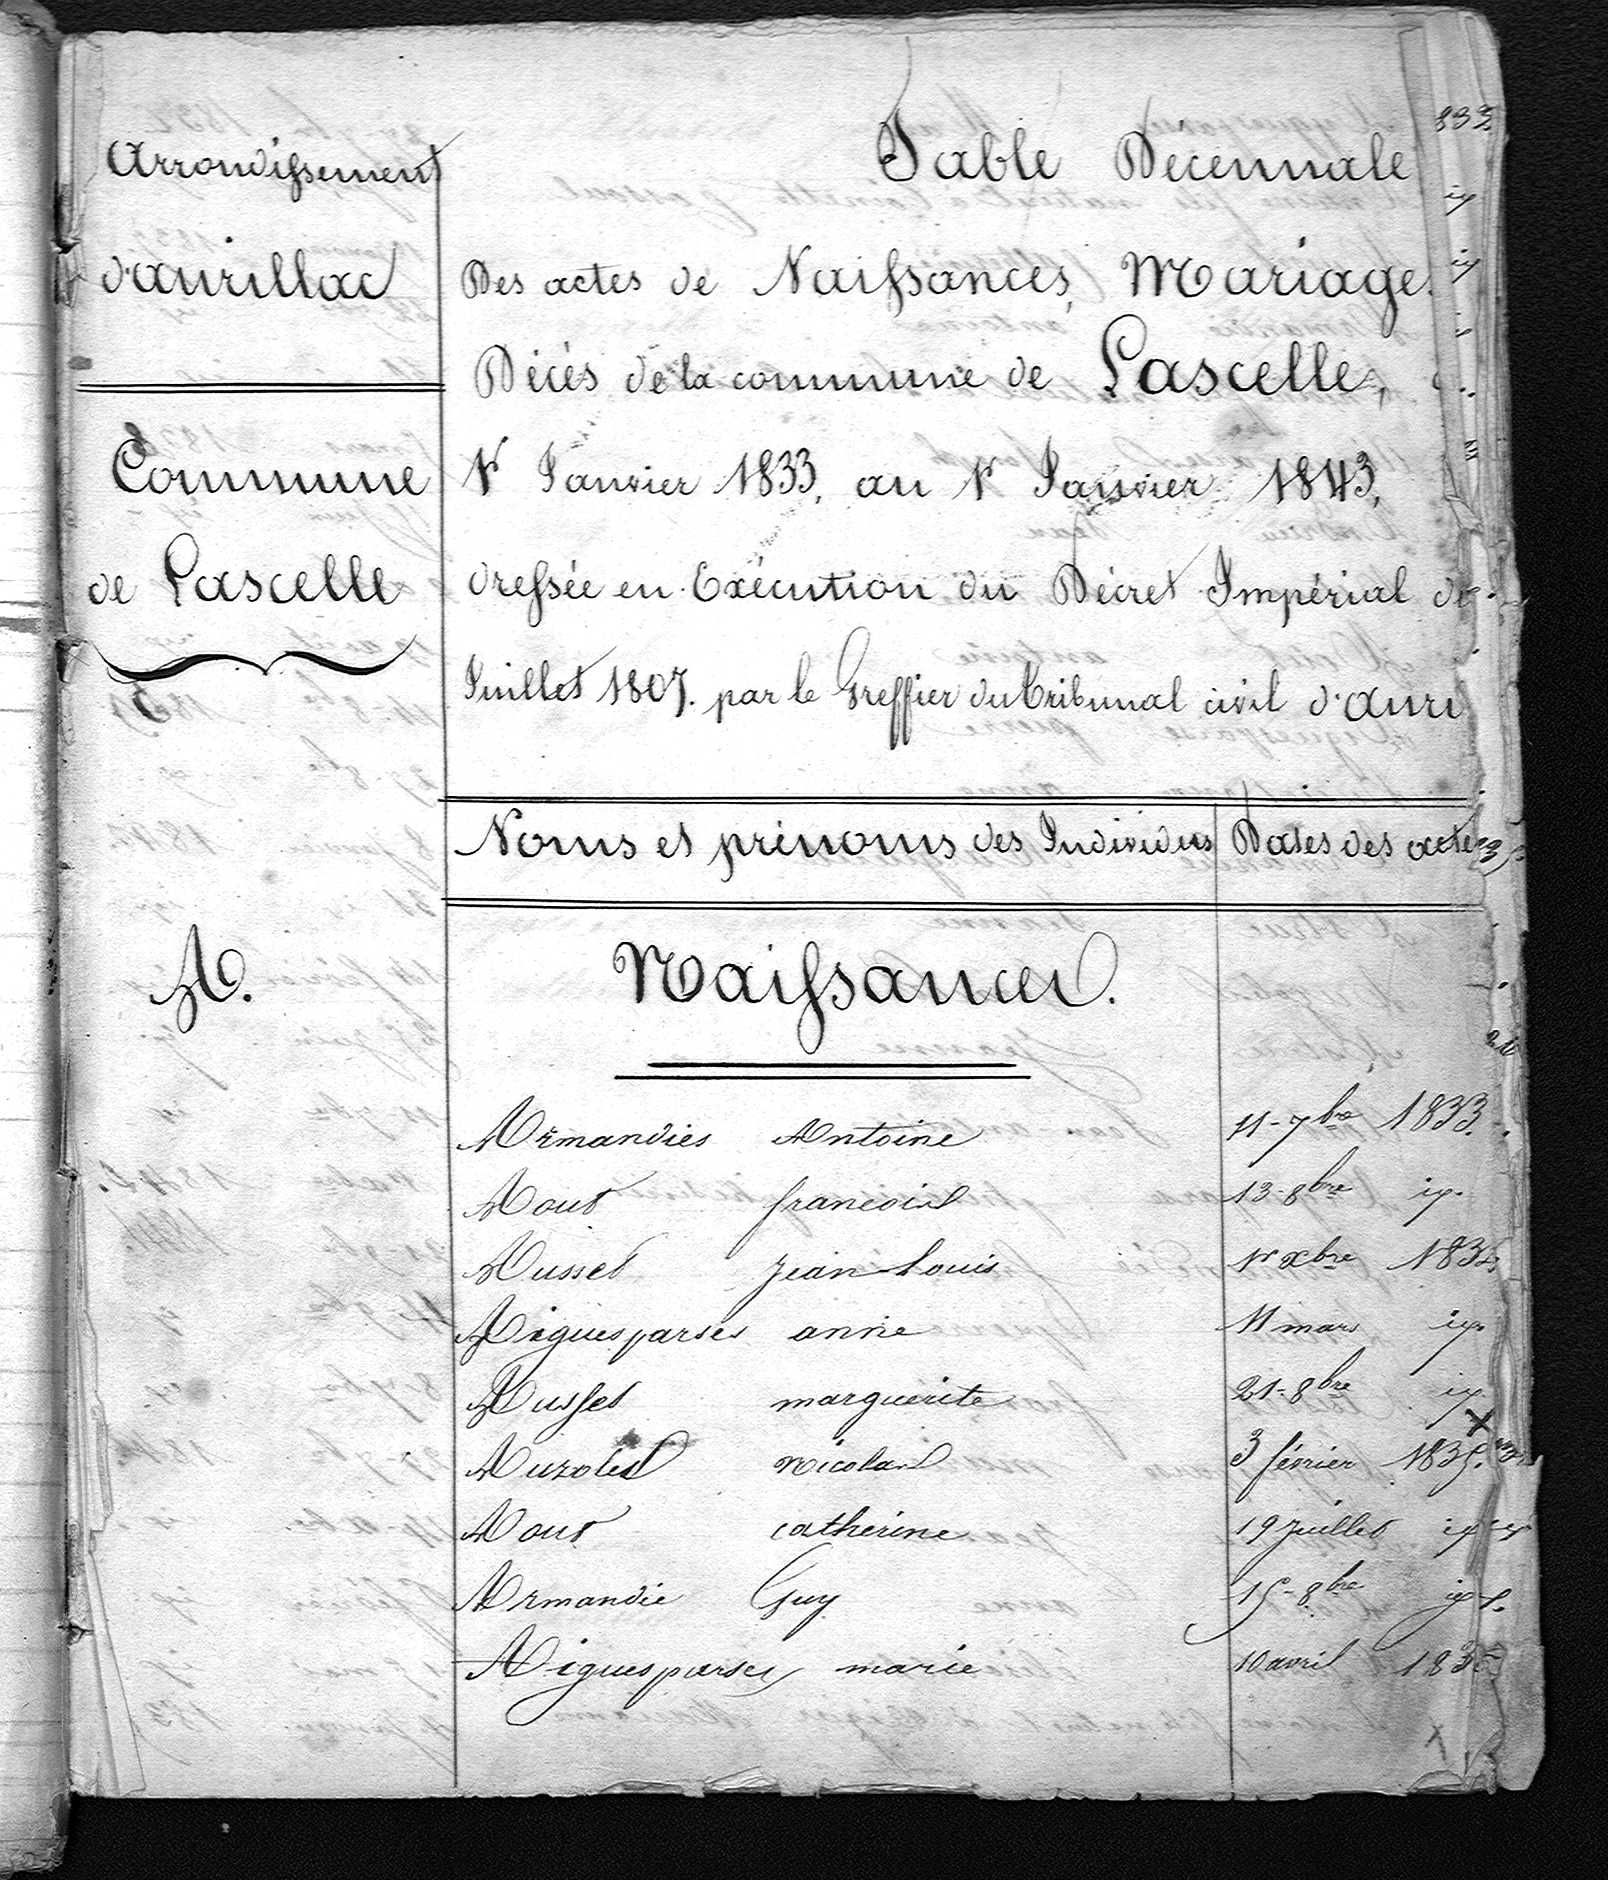 Arrondissement
d'aurillac
Commune
de Lascelle
Table Décennale
Des actes de Naissances, Mariage
Décès de la commune de Lascelle,
1r Janvier 1833, au 1r Janvier 1843,
dressée en Exécution du Décret Impérial de
Juillet 1807. par le Greffier du tribunal civil d'auri
Noms et prénoms des Individus Dates des acte
A. Naissances.
Armandies Antoine 11-7bre 1833.
Aout francois 13-8bre id.
Ausset Jean-Louis 1r xbre
Aiguesparses anne 11 mars id.
Ausset marguerite 21-8bre id.
Auzolles nicolas 3 février 1835.
Aout catherine 19 Juillet id
Armandie Guy 15-8bre id.
Aiguesparses marie 10 avril